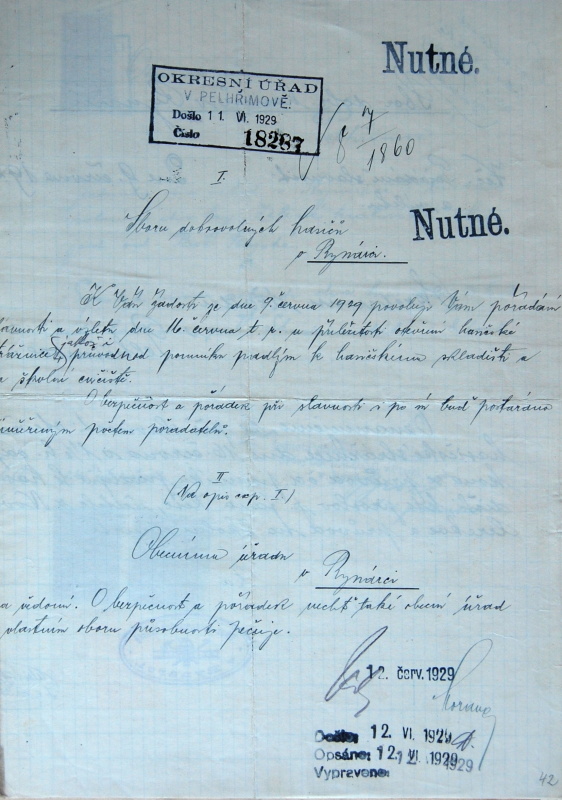 Nutné.
OKRESNÍ ÚŘAD
V PELHŘIMOVĚ.
Došlo 11 VI. 1929
Číslo 18287
8 7/1860
I.
Nutné.
Sboru dobrovolných hasičů
v Rynárci.
K Vaší žádosti ze dne 9. června 1929 povoluji Vám pořádání
slavnosti a výletu dne 16. června t. r. u příležitosti otevření hasičské
jakož i
průvodu od pomníku padlým k hasičskému skladišti a
školní cvičiště.
O bezpečnost a pořádek při slavnosti i po ní buď postaráno
přiměřeným počtem pořadatelů.
II
(Na opis exp. I.)
Obecnímu úřadu
v Rynárci
na vědomí. O bezpečnost a pořádek nechť také obecní úřad
vlastním oboru působnosti pečuje.
12. červ. 1929
Došlo: 12. VI. 1929
Opsáno: 12. VI. 1929
Vypraveno:
42